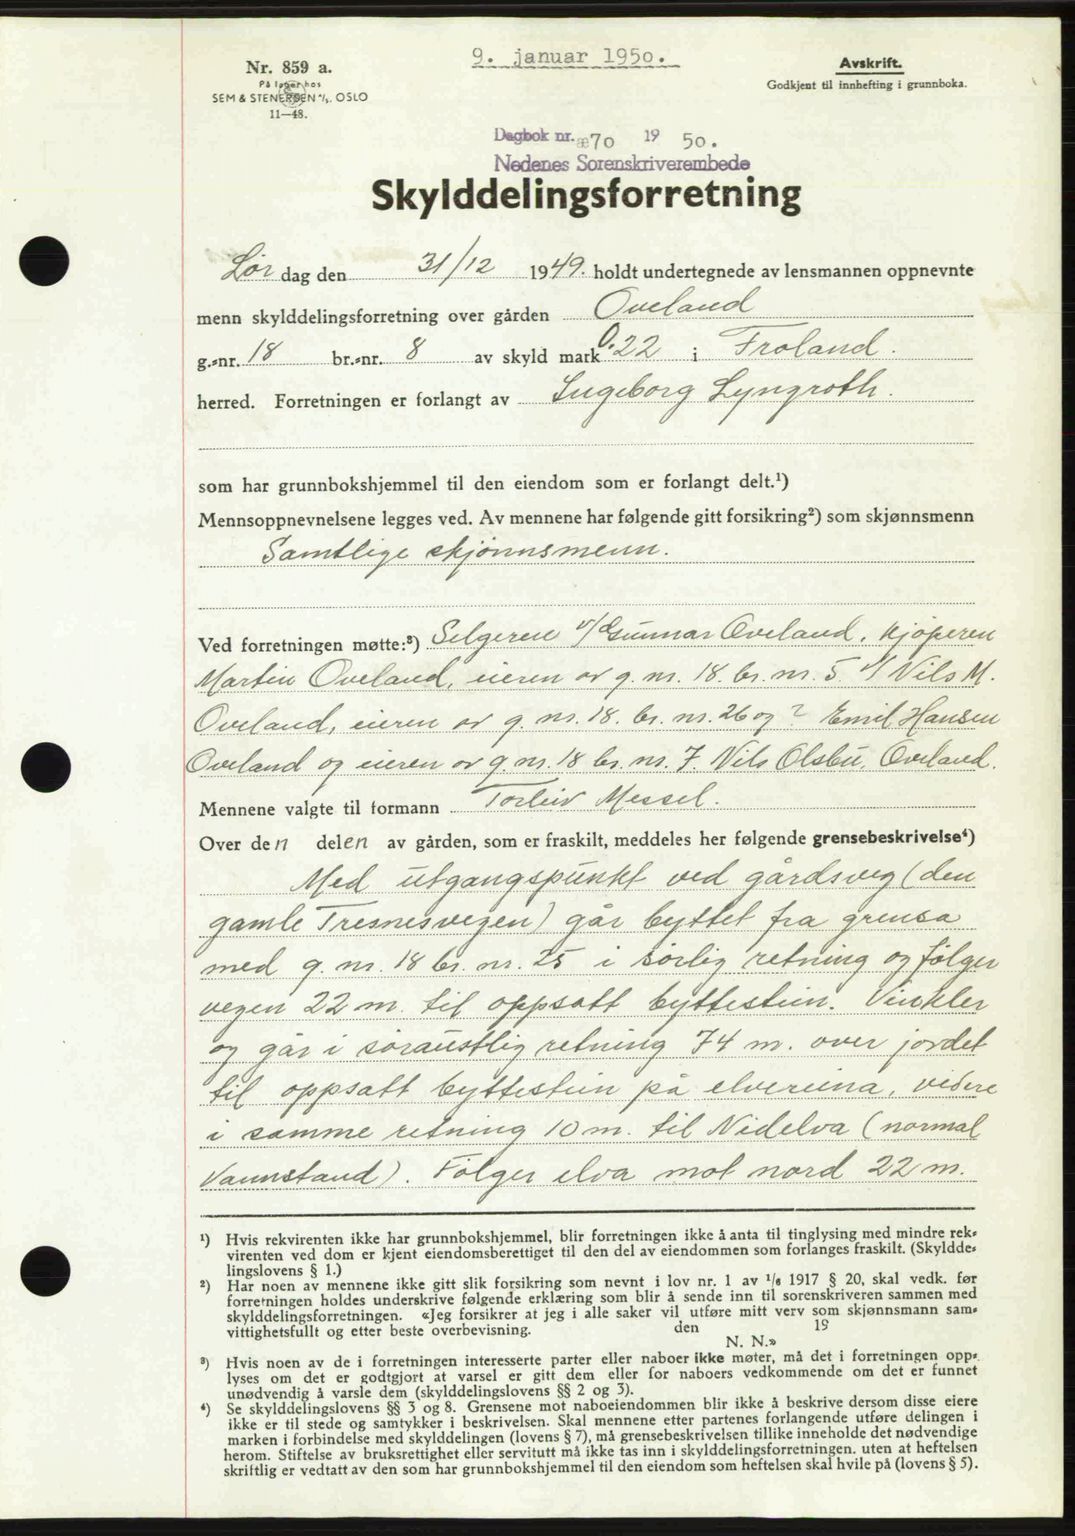 9. januar 1950.
Nr. 859 a.
På lager hos
SEM & STENERSEN A/S. OSLO
11—48.
Avskrift.
Godkjent til innhefting i grunnboka.
Dagbok nr. æ70 19 50.
Nedenes Sorenskriverembede
Skylddelingsforretning
Lør dag den 31/12 1949. holdt undertegnede av lensmannen oppnevnte
menn skylddelingsforretning over gården Oveland
g.-nr. 18 br.-nr. 8 av skyld mark 0.22 i Froland.
herred. Forretningen er forlangt av Ingeborg Lyngroth.
som har grunnbokshjemmel til den eiendom som er forlangt delt.¹)
Mennsoppnevnelsene legges ved. Av mennene har følgende gitt forsikring²) som skjønnsmenn
Samtlige skjønnsmenn.
Ved forretningen møtte:³) Selgeren v/ Gunnar Oveland, kjøperen
Martin Oveland, eieren av g. nr. 18. br. nr. 5. v/ Nils M.
Oveland, eieren av g. nr. 18. br. nr. 26 og ? Emil Hansen
Oveland og eieren av g. nr. 18 br. nr. 7. Nils Olsbu, Oveland.
Mennene valgte til formann Torleiv Messel.
Over den delen av gården, som er fraskilt, meddeles her følgende grensebeskrivelse⁴)
Med utgangspunkt ved gårdsveg (den
gamle Tresnesvegen) går byttet fra grensa
med g. nr. 18 br. nr. 25 i sørlig retning og følger
vegen 22 m. til oppsatt byttestein. Vinkler
og går i søraustlig retning 74 m. over jordet
til oppsatt byttestein på elvereina, videre
i samme retning 10 m. til Nidelva (normal
vannstand). Følger elva mot nord 22 m.
¹) Hvis rekvirenten ikke har grunnbokshjemmel, blir forretningen ikke å anta til tinglysing med mindre rek-
virenten ved dom er kjent eiendomsberettiget til den del av eiendommen som forlanges fraskilt. (Skyldde-
lingslovens § 1.)
²) Har noen av mennene ikke gitt slik forsikring som nevnt i lov nr. 1 av 1/6 1917 § 20, skal vedk. før
forretningen holdes underskrive følgende erklæring som blir å sende inn til sorenskriveren sammen med
skylddelingsforretningen. «Jeg forsikrer at jeg i alle saker vil utføre mitt verv som skjønnsmann sam-
vittighetsfullt og etter beste overbevisning. den 19
N. N.»
³) Hvis noen av de i forretningen interesserte parter eller naboer ikke møter, må det i forretningen opp-
lyses om det er godtgjort at varsel er gitt dem eller for naboers vedkommende om det er funnet
unødvendig å varsle dem (skylddelingslovens §§ 2 og 3).
⁴) Se skylddelingslovens §§ 3 og 8. Grensene mot naboeiendommen blir ikke å beskrive dersom disse eiere
ikke er til stede og samtykker i beskrivelsen. Skal mennene etter partenes forlangende utføre delingen i
marken i forbindelse med skylddelingen (lovens § 7), må grensebeskrivelsen tillike inneholde det nødvendige
herom. Stiftelse av bruksrettighet eller servitutt må ikke tas inn i skylddelingsforretningen. uten at heftelsen
skriftlig er vedtatt av den som har grunnbokshjemmel til den eiendom som heftelsen skal hvile på (lovens § 5).